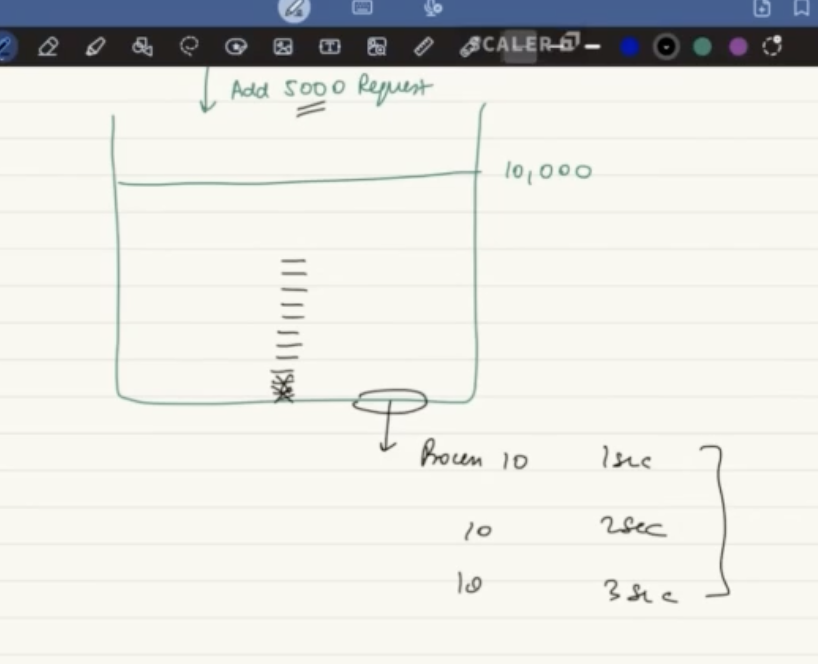 SCALER
Add 5000 Request
10,000
Process 10 1sec
10 2sec
10 3sec